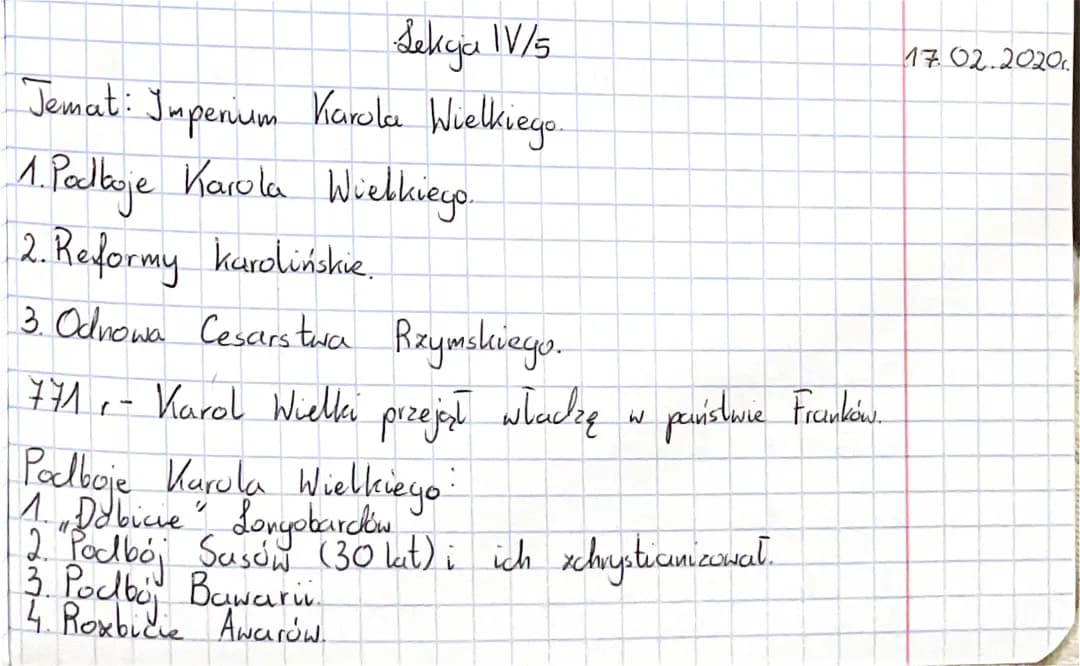 Lekcja IV/5
17.02.2020r.
Temat: Imperium Karola Wielkiego.
1. Podboje Karola Wielkiego.
2. Reformy karolińskie.
3. Odnowa Cesarstwa Rzymskiego.
771r. - Karol Wielki przejął władzę w państwie Franków.
Podboje Karola Wielkiego:
1. „Dobicie" Longobardów
2. Podbój Sasów (30 lat) i ich zchrystianizował.
3. Podbój Bawarii.
4. Rozbicie Awarów.